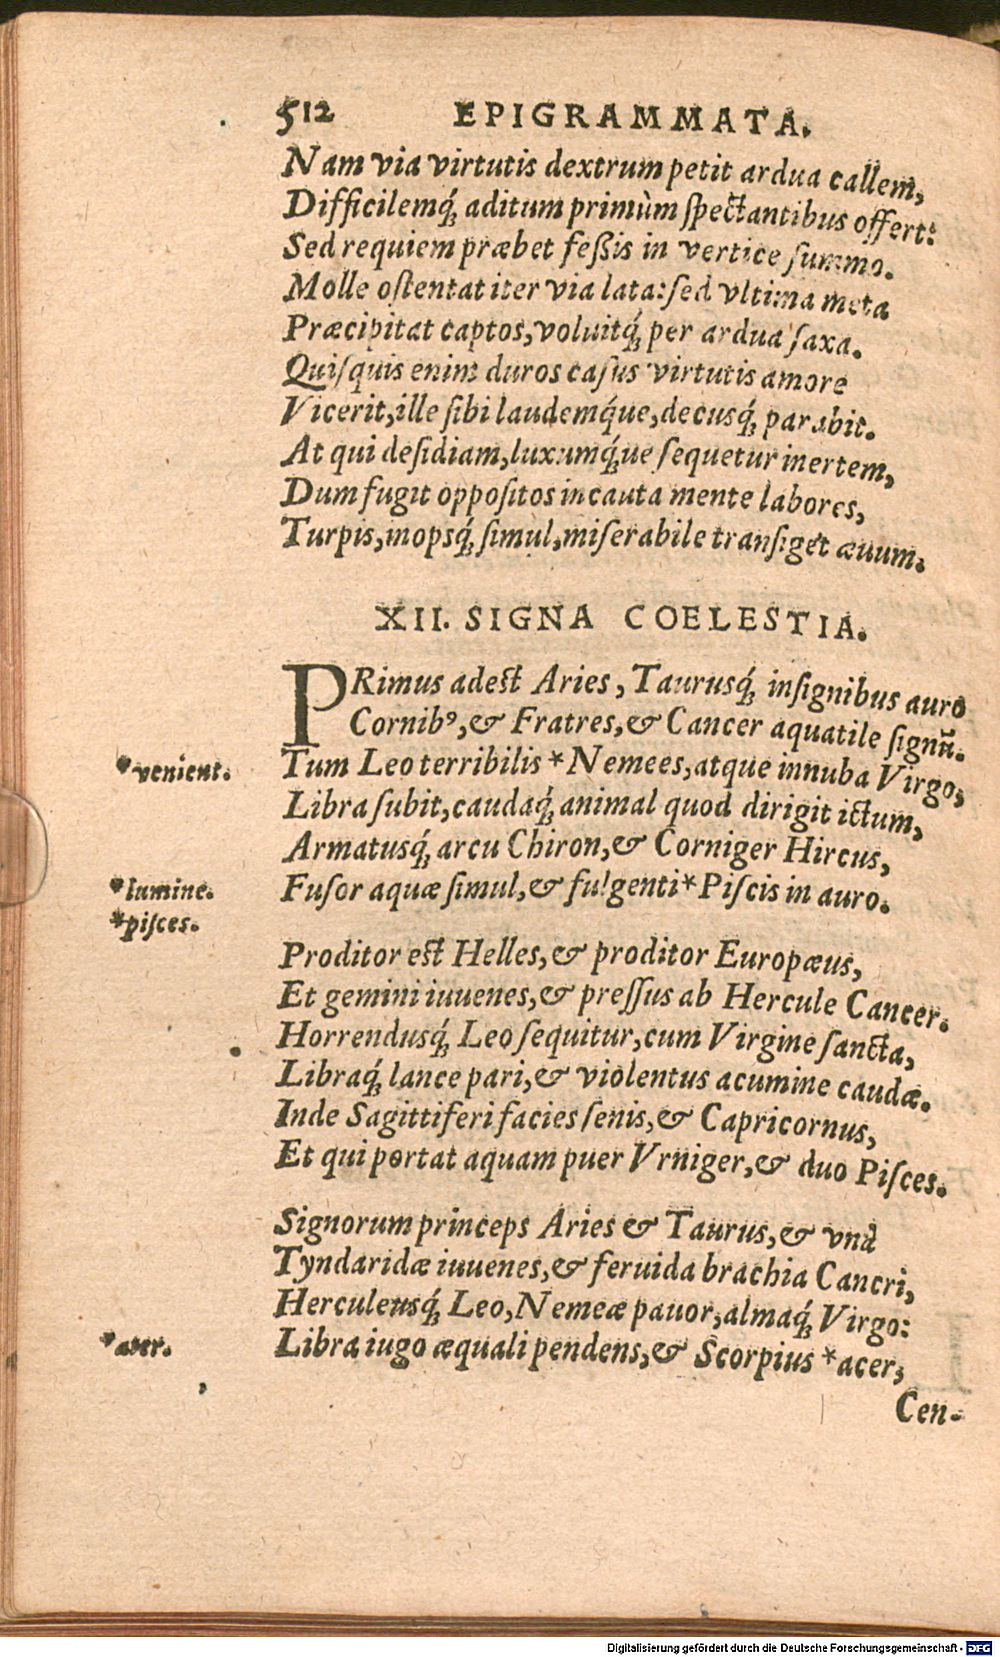 512 EPIGRAMMATA.
Nam via virtutis dextrum petit ardua callem,
Difficilemq́; aditum primùm ſpectantibus offert:
Sed requiem præbet feßis in vertice ſummo.
Molle oſtentat iter via lata: ſed vltima meta
Præcipitat captos, voluitq́; per ardua ſaxa.
Quiſquis enim duros caſus virtutis amore
Vicerit, ille ſibi laudemq́ue, decusq́; parabit.
At qui deſidiam, luxumq́ue ſequetur inertem,
Dum fugit oppoſitos incauta mente labores,
Turpis, inopsq́; ſimul, miſerabile tranſiget æuum.
XII. SIGNA COELESTIA.
PRimus adest Aries, Taurusq́; inſignibus auro
Cornibꝰ, & Fratres, & Cancer aquatile ſignũ.
Tum Leo terribilis *Nemees, atque innuba Virgo,
*venient.
Libra ſubit, caudaq́; animal quod dirigit ictum,
Armatusq́; arcu Chiron, & Corniger Hircus,
Fuſor aquæ ſimul, & fulgenti *Piſcis in auro.
*lumine.
*piſces.
Proditor est Helles, & proditor Europæus,
Et gemini iuuenes, & preſſus ab Hercule Cancer.
Horrendusq́; Leo ſequitur, cum Virgine ſancta,
Libraq́; lance pari, & violentus acumine caudæ.
Inde Sagittiferi facies ſenis, & Capricornus,
Et qui portat aquam puer Vrniger, & duo Piſces.
Signorum princeps Aries & Taurus, & vnà
Tyndaridæ iuuenes, & feruida brachia Cancri,
Herculeusq́; Leo, Nemeæ pauor, almaq́; Virgo:
Libra iugo æquali pendens, & Scorpius *acer,
Cen-
Digitalisierung gefördert durch die Deutsche Forschungsgemeinschaft - DFG